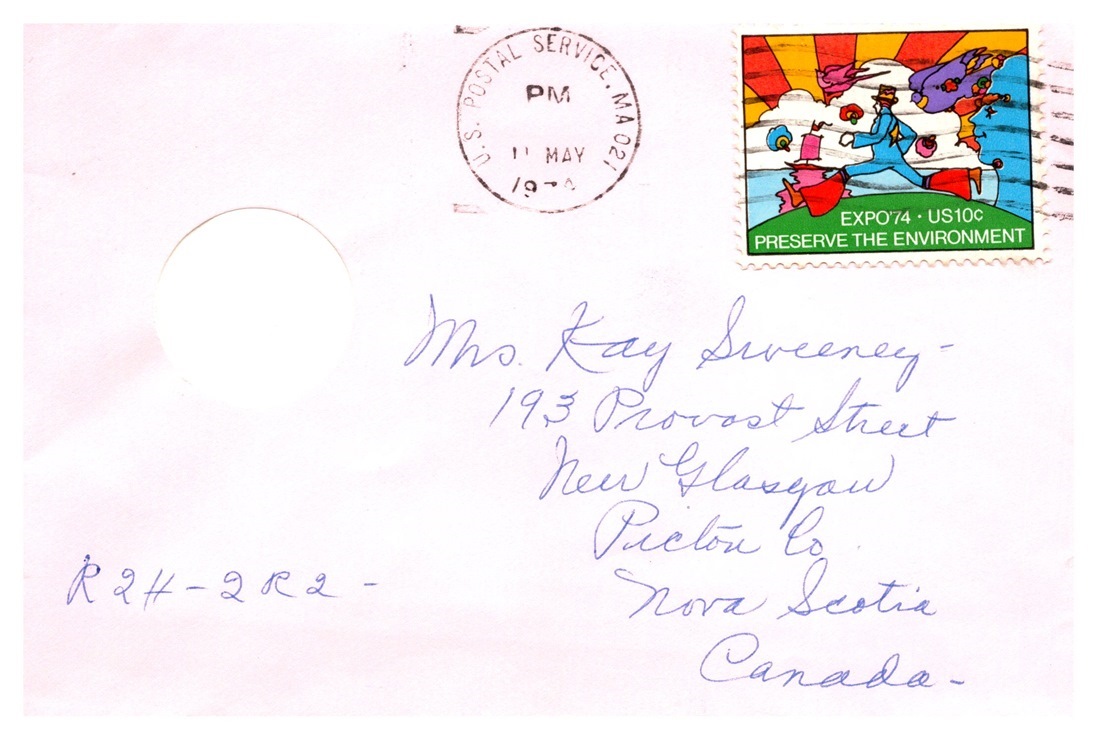 U.S. POSTAL SERVICE, MA 021
PM
11 MAY
EXPO'74 · US10c
PRESERVE THE ENVIRONMENT
Mrs. Kay Sweeney-
193 Provost Street
New Glasgow
Pictou Co.
Nova Scotia
Canada-
R2H-2R2-